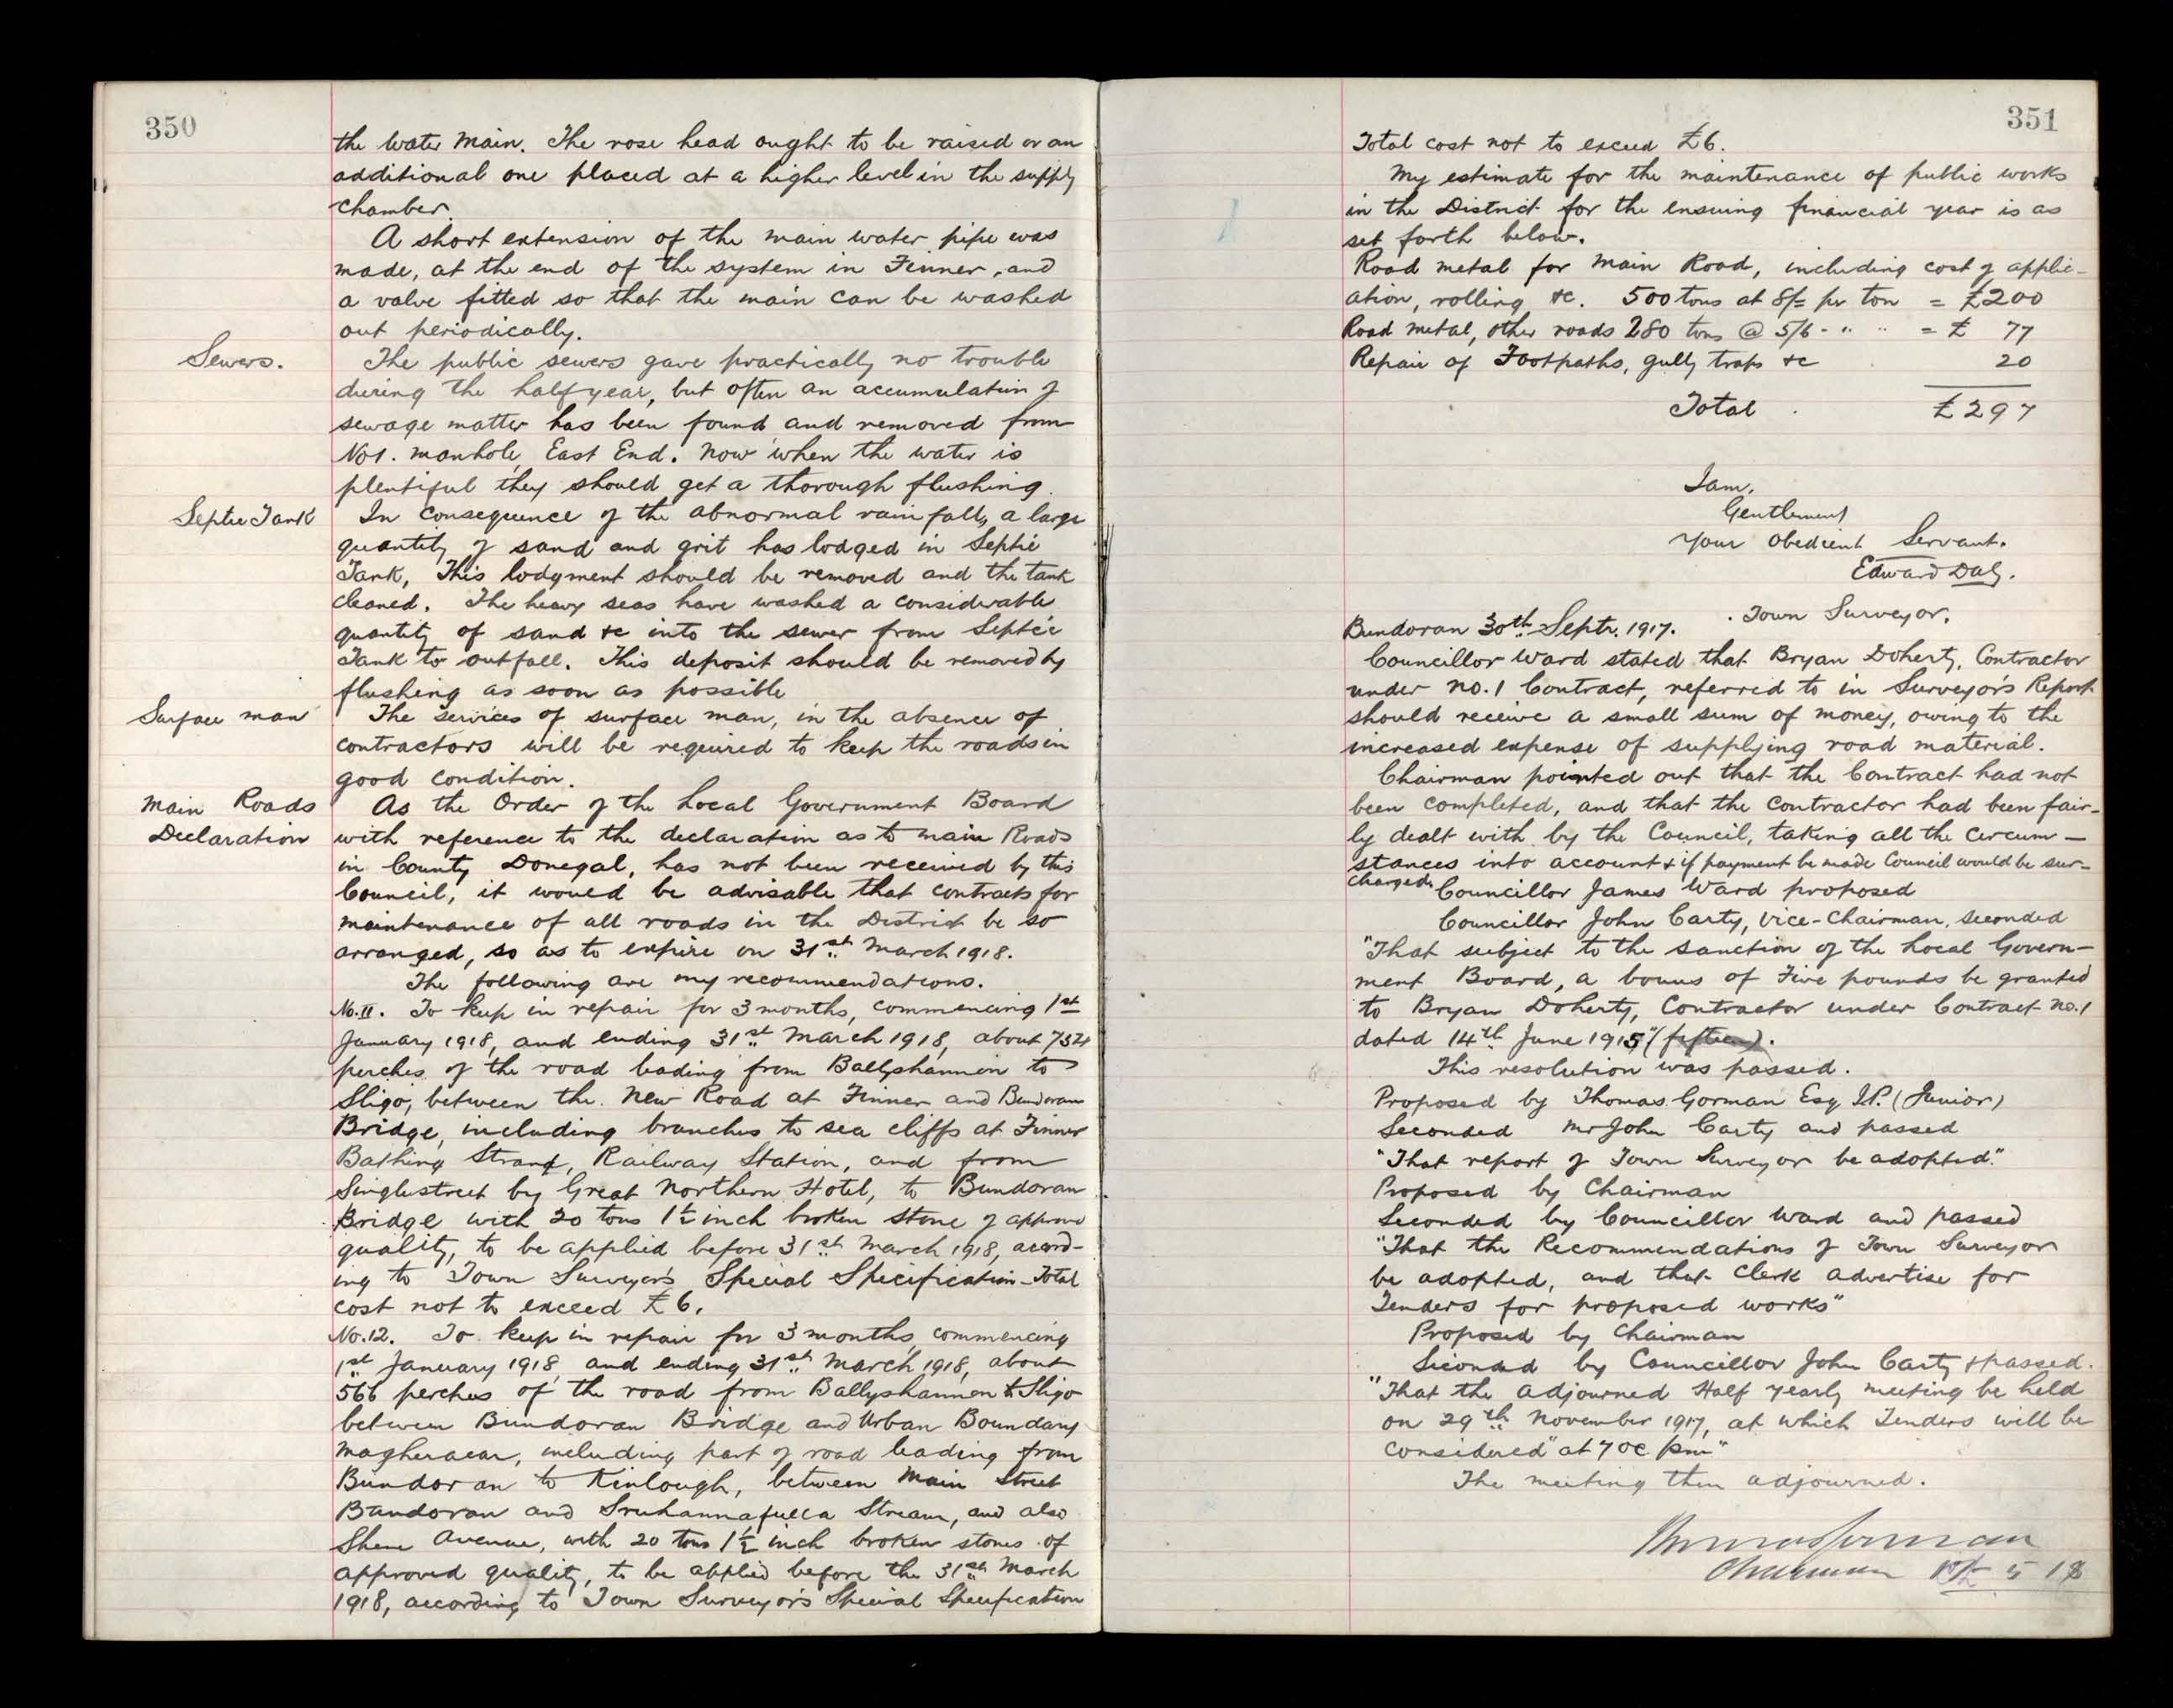 350
the water main. The rose head ought to be raised or an
additional one placed at a higher level in the supply
chamber.
A short extension of the main water pipe was
made, at the end of the system in Finner, and
a valve fitted so that the main can be washed
out periodically.
Sewers.
The public sewers gave practically no trouble
during the half year, but often an accumulation of
sewage matter has been found and removed from
No 1. manhole, East End. Now when the water is
plentiful they should get a thorough flushing.
Septic Tank
In consequence of the abnormal rainfall, a large
quantity of sand and grit has lodged in Septic
Tank, This lodgment should be removed and the tank
cleaned. The heavy seas have washed a considerable
quantity of sand &c into the sewer from Septic
Tank to outfall. This deposit should be removed by
flushing as soon as possible
Surface man
The services of surface man, in the absence of
contractors will be required to keep the roads in
good condition.
Main Roads
Declaration
As the Order of the Local Government Board
with reference to the declaration as to main Roads
in County Donegal, has not been received by this
Council, it would be advisable that contracts for
maintenance of all roads in the District be so
arranged, so as to expire on 31st March 1918.
The following are my recommendations.
No. II. To keep in repair for 3 months, commencing 1st
January 1918, and ending 31st March 1918, about
perches of the road leading from Ballyshannon to
Sligo, between the New Road at Finner and Bundoran
Bridge, including branches to sea cliffs at Finner
Bathing Strand, Railway Station, and from
Singlestreet by Great Northern Hotel, to Bundoran
Bridge with 20 tons 1½ inch broken stone of approved
quality, to be applied before 31st March 1918, accord-
ing to Town Surveyor's Special Specification - Total
cost not to exceed £6.
No. 12. To keep in repair for 3 months, commencing
1st January 1918, and ending 31st March 1918, about
566 perches of the road from Ballyshannon to Sligo
between Bundoran Bridge and Urban Boundary
Magheracar, including part of road leading from
Bundoran to Kinlough, between Main Street
Bundoran and Sruhannafulla Stream, and also
Shene Avenue, with 20 tons 1½ inch broken stones of
approved quality, to be applied before the 31st March
1918, according to Town Surveyor's Special Specification
351
Total cost not to exceed £6.
My estimate for the maintenance of public works
in the District for the ensuing financial year is as
set forth below.
Road metal for Main Road, including cost of applic-
ation, rolling &c. 500 tons at 8/= per ton = £200
Road metal, other roads 280 tons @ 5/6 - " " = £ 77
Repair of Footpaths, gully traps &c 20
Total £297
I am,
Gentlemen
Your Obedient Servant.
Edward Daly.
Town Surveyor.
Bundoran 30th Septr. 1917.
Councillor Ward stated that Bryan Doherty, Contractor
under No. 1 Contract, referred to in Surveyor's Report
should receive a small sum of money, owing to the
increased expense of supplying road material.
Chairman pointed out that the Contract had not
been completed, and that the contractor had been fair-
ly dealt with by the Council, taking all the circum-
stances into account & if payment be made Council would be sur-
charged.
Councillor James Ward proposed
Councillor John Carty, Vice-Chairman, seconded
"That subject to the sanction of the Local Govern-
ment Board, a bonus of Five pounds be granted
to Bryan Doherty, Contractor under Contract No. 1
dated 14th June 1915" (fifteen).
This resolution was passed.
Proposed by Thomas Gorman Esq J.P. (Junior)
Seconded Mr John Carty and passed
"That report of Town Surveyor be adopted."
Proposed by Chairman
Seconded by Councillor Ward and passed
"That the Recommendations of Town Surveyor
be adopted, and that Clerk advertise for
Tenders for proposed works"
Proposed by Chairman
Seconded by Councillor John Carty & passed.
"That the adjourned Half yearly meeting be held
on 29th November 1917, at which Tenders will be
considered" at 7 oc pm"
The meeting then adjourned.
Thomas Gorman
Chairman 5 18